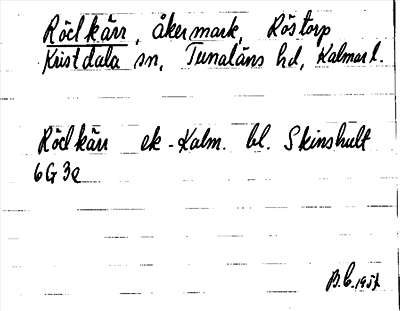 Rödkärr, åkermark, Röstorp
Kristdala sn, Tunaläns hd, Kalmar l.
Rödkärr ek-Kalm. bl. Skinshult
6G 3e
B.C. 1957